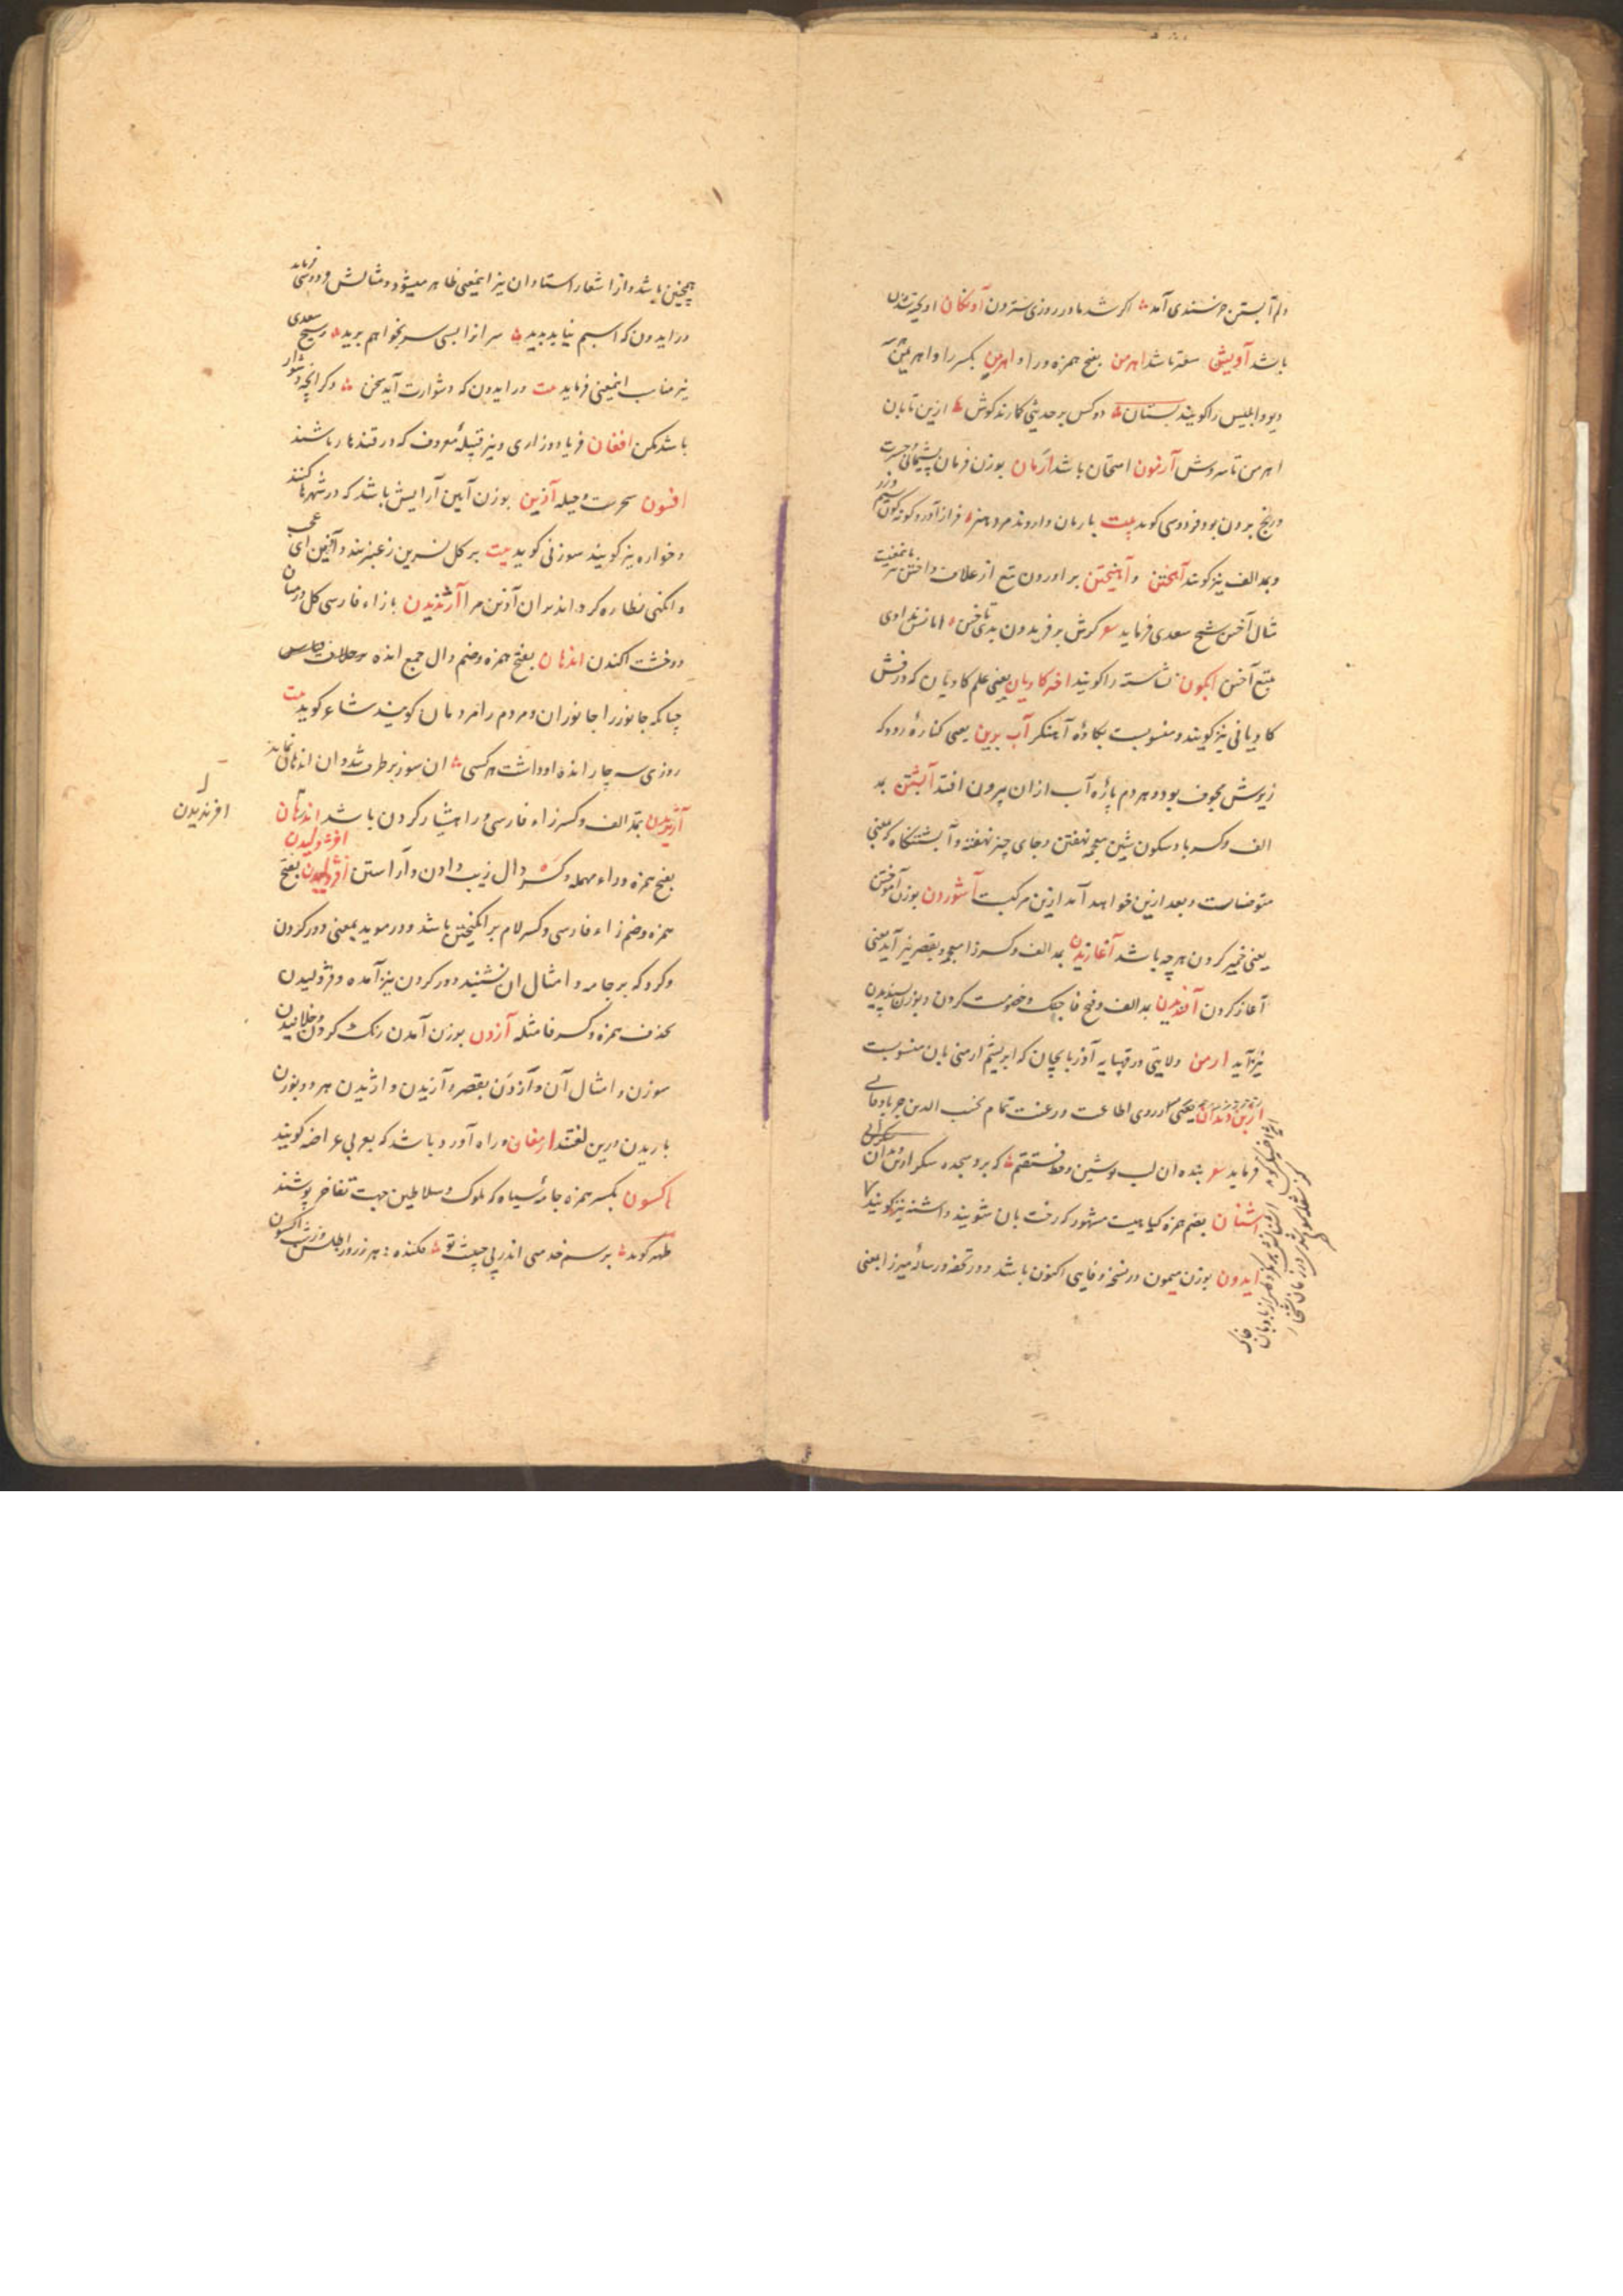 دلم آبستن خرسندی آمد اکر شد مادر روزی سترون آونکان اویخته شدن
باشد آویشن سعتر باشد اهرمن بفتح همزه و را و اهرمن بکسر را و اهریمن
دیو و ابلیس را کویند بستان دو کس بر حدیثی کمارند کوش ازین تا بان
اهرمن تا سروش آرمون امتحان باشد ارمان بوزن فرمان پشیمانی و حسرت
و رنج بردن بود فردوسی کوید بیت بارمان و اروند مرد هنر فراز آورد کونه کون سیم و زر
و بمد الف نیز کویند آهختن و آهیختن بر اوردن تیغ از غلاف
مثال آختن شیخ سعدی فرماید کرش بر فریدون بدی تاختن امانش ندادی
بتیغ آختن ابکون نشاسته را کویند اختر کاویان یعنی علم کاویان که درفش
کاویانی نیز کویند و منسوبست بکاوۀ آهنکر آب برین یعنی کنارۀ رود که
زیرش مجوف بود و هر دم پارۀ آب از ان بیرون افتد آبشتن بمد
الف و کسر با و سکون شین معجمه نهفتن و جای چیز نهفته و آبشتنکاه که بمعنی
متوضاست و بعد ازین خواهد آمد ازین مرکبست آشوردن بوزن آموختن
یعنی خمیر کردن هر چه باشد آغازیدن بمد الف و کسر زا معجمه و بقصر نیز آید یعنی
آغاز کردن آفندیدن بمد الف و فتح فا جنک و خصومت کردن و بوزن پسندیدن
نیز آید ارمن ولایتی در قهپایه آذربایجان که ابریشم ارمنی بان منسوبست
از بن دندان یعنی از روی اطاعت و رغبت تمام نجیب الدین جربادقانی
فرماید بنده ان لب نوشین و خط فستقیم که برو سجده شکر از بن دندان
اشنان بضم همزه کیاهیست مشهور که رخت بان شویند و اشنه نیز کویند
ایدون بوزن میمون در نسخۀ وفایی اکنون باشد و در تحفه و رسالۀ میرزا بمعنی
همچنین باشد و از اشعار استادان نیز اینمعنی ظاهر میشود و مثالش فردوسی فرماید
در ایدون که اسبم نیاید پدید سرانرا بسی سر بخواهم برید و شیخ سعدی
نیز مناسب اینمعنی فرماید بیت ور ایدون که دشوارت آید سخن دکر انچه دشوار
باشد مکن افغان فریاد و زاری و نیز قبیلۀ معروف که در قندهار باشند
افسون سحرست و حیله آذین بوزن آیین آرایش باشد که در شهرها کنند
و خواره نیز کویند سوزنی کوید بیت بر کل نسرین ز عنبر بند و آذین
و انکهی نظاره کرد اندر ان آذین مرا آژندیدن بازاء فارسی کل در میان
دو خشت اکندن اندهان بفتح همزه و ضم دال جمع انده بر خلاف قیاس
چنانکه جانور را جانوران و مردم را مردمان کویند شاعر کوید بیت
روزی سه چار انده او داشت هر کسی ان سوز بر طرف شد و ان اندهان نماند
آژیریدن بمد الف و کسر زاء فارسی و را هشیار کردن باشد
افرندیدن
بفتح همزه و راء مهمله و کسر دال زیب دادن و آراستن افژولیدن بفتح
همزه و ضم زاء فارسی و کسر لام بر انکیختن باشد و در موید بمعنی دور کردن
و کرد که بر جامه و امثال ان نشیند دور کردن نیز آمده و فژولیدن
بحذف همزه و کسر فا مثله آژدن بوزن آمدن رنک کردن و خلانیدن
سوزن و امثال آن و آژدن بقصر و آژیدن و اژیدن هر دو بوزن
باریدن درین لغتند ارمغان راه آورد باشد که بعربی عراضه کویند
اکسون بکسر همزه جامۀ سیاه که ملوک و سلاطین جهت تفاخر پوشند
ظهیر کوید برسم خدمتی اندر پی جنیبت تو فکنده هر روز اطلس و شب اکسون